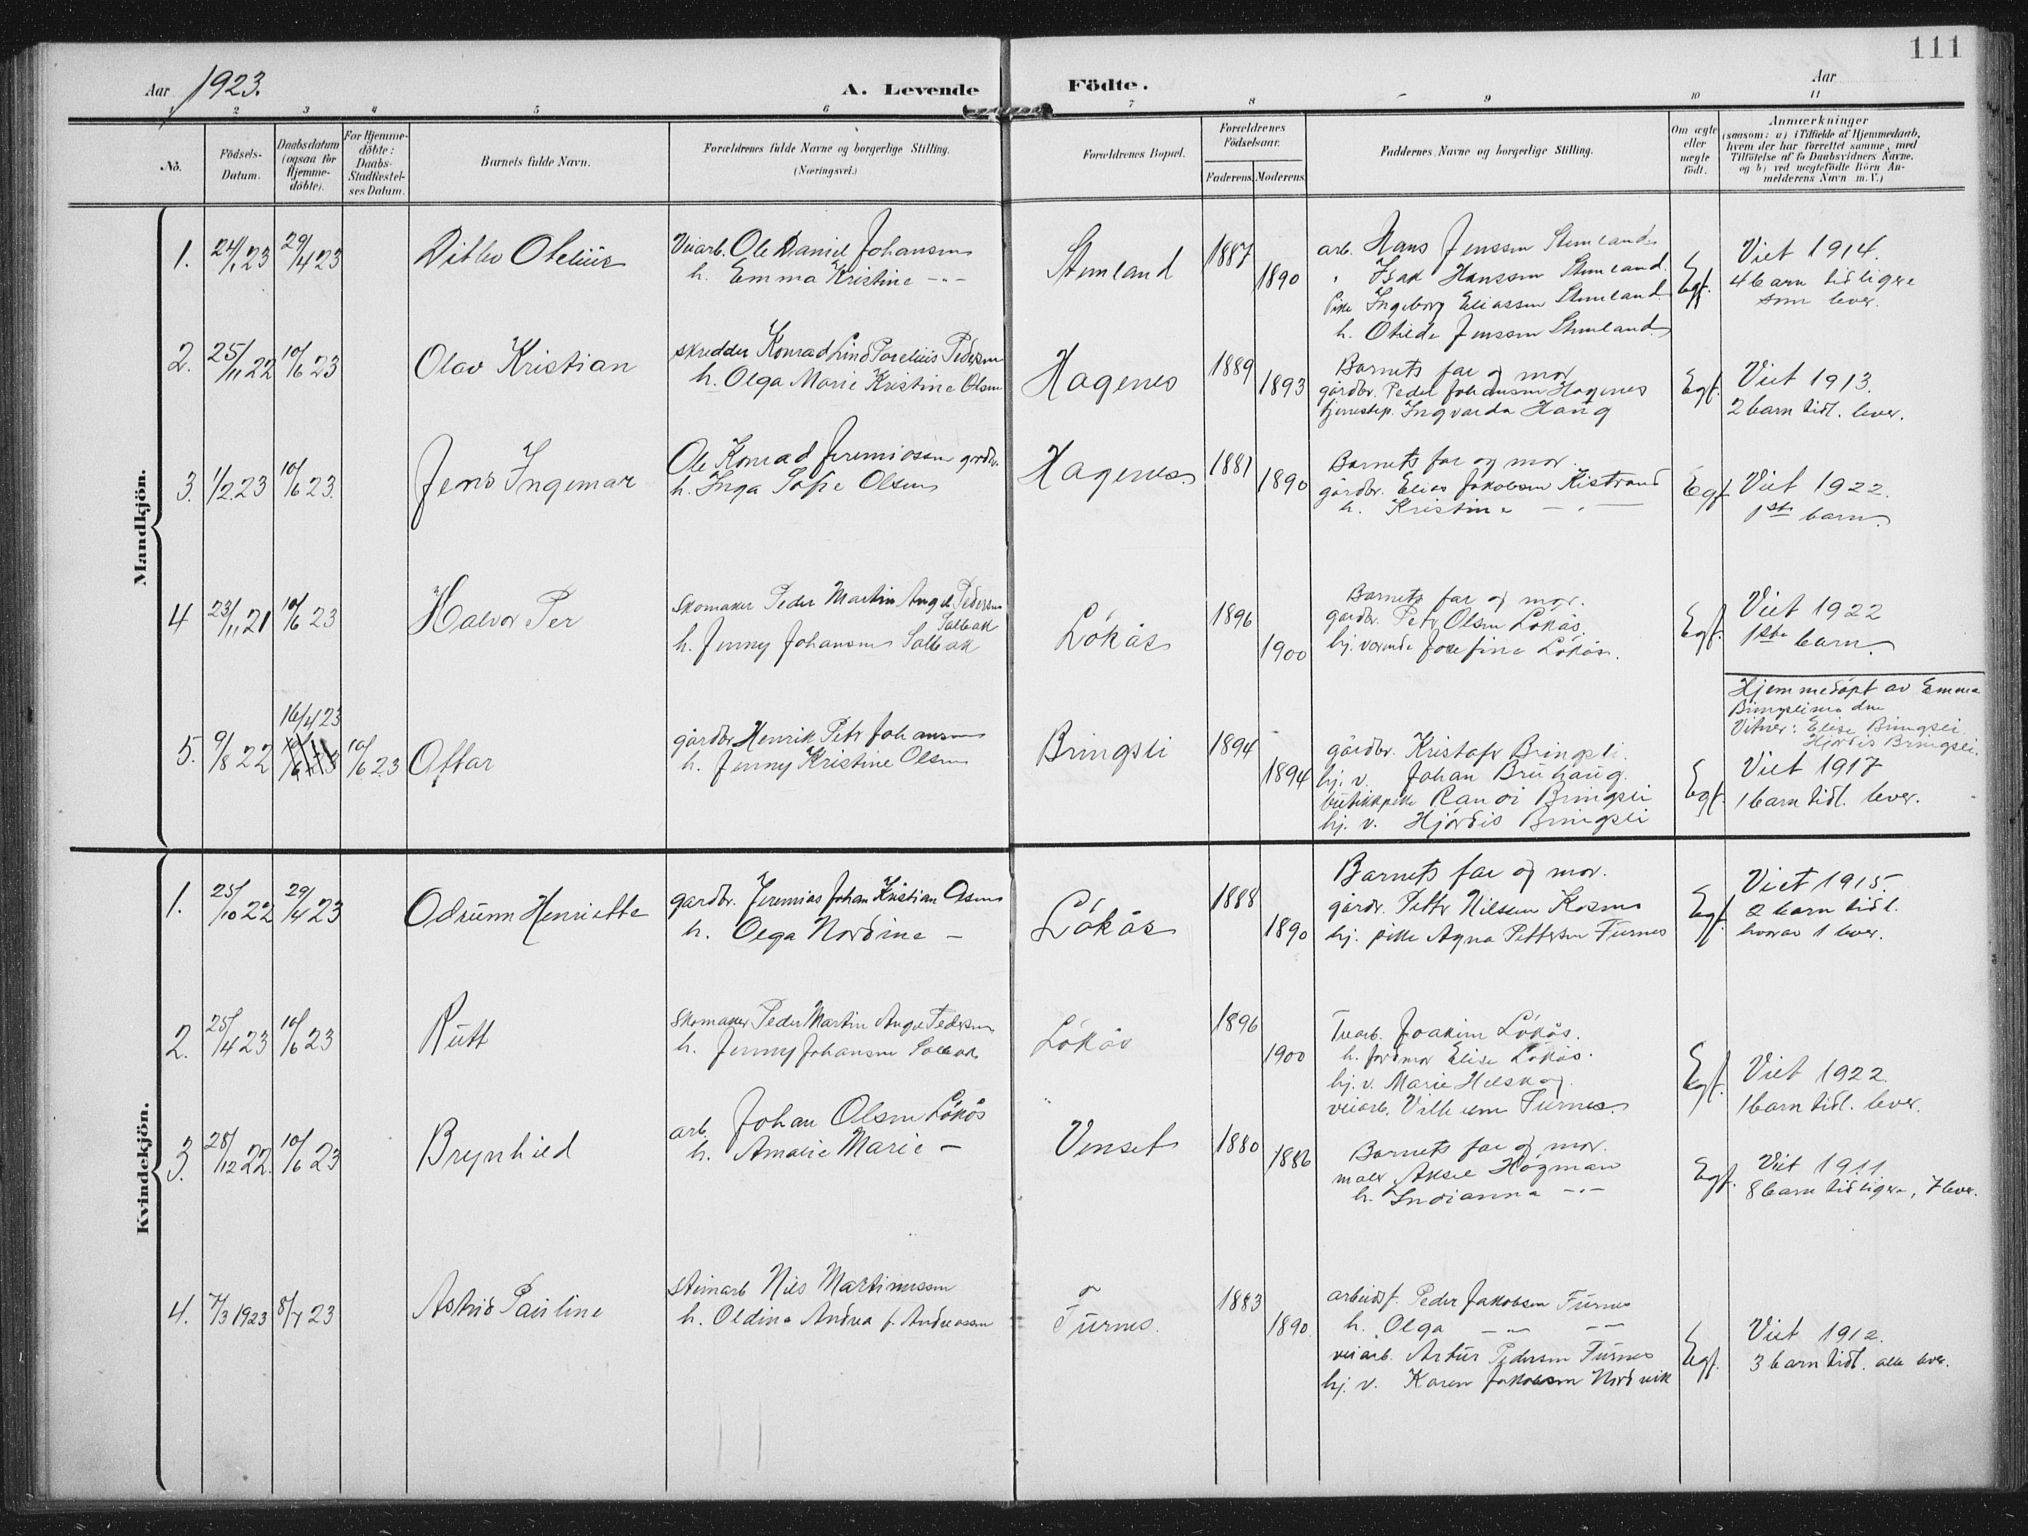 111
Aar 1923.
A. Levende Födte.
Aar
1 2 3 4 5 6 7 8 9 10 11
No.
Födsels-
Datum.
Daabsdatum
(ogsaa for
Hjemme-
döbte).
For Hjemme-
döbte:
Daabs-
Stadfæstel-
ses Datum.
Barnets fulde Navn.
Forældrenes fulde Navne og borgerlige Stilling.
(Næringsvei.)
Forældrenes Bopæl.
Forældrenes
Födselsaar.
Faderens. Moderens.
Faddernes Navne og borgerlige Stilling.
Om ægte
eller
uægte
födt.
Anmærkninger
(saasom: a) i Tilfælde af Hjemmedaab,
hvem der har forrettet samme, med
Tilföielse af to Daabsvidners Navne,
og b) ved uægtefödte Börn An-
melderens Navn m. V.)
Mandkjön.
1. 24/1 23 29/4 23
Ditlev Otelius
Veiarb. Ole Daniel Johansen
h. Emma Kristine -"-
Stemland
1887
1890
arb. Hans Jenssen Stemland
" Isak Hanssen Stemland
Pike Ingeborg Eliassen Stemland
h. Otilde Jenssen Stemland
Egf.
Viet 1914.
4 barn tidligere
som lever.
2. 25/11 22 10/6 23
Olav Kristian
skredder Konrad Lind Parelius Pedersen
h. Olga Marie Kristine Olsen
Hagenes
1889
1893
Barnets far og mor
gårdbr. Peder Johansen Hagenes
tjenestep. Ingvarda Haug
Egf.
Viet 1913.
2 barn tidl. lever.
3. 1/2 23 10/6 23.
Jens Ingemar
Ole Konrad Jeremiassen gårdbr.
h. Inga Sofie Olsen
Hagenes
1881
1890
Barnets far og mor.
gårdbr. Elias Jakobsen Kistrand
h. Kristine - " -
Egf.
Viet 1922.
1ste barn.
4 23/11 21 10/6 23
Halvor Per
Skomaker Peder Martin Angel Pedersen
Salbak
h. Jenny Johansen Salbak
Lökås
1896
1900
Barnets far og mor.
gårdbr. Petr. Olsen Lökås.
hj. værende Josefine Lökås.
Egf.
Viet 1922
1ste barn.
5. 9/8 22 16/4 23 10/6 23
Ottar
gårdbr. Henrik Petr. Johansen
h. Jenny Kristine Olsen
Bringsli
1894
1894
gårdbr. Kristofr Bringsli.
hj. v. Johan Bruhaug.
butikkpike Randi Bringsli
hj. v. Hjördis Bringsli
Egf.
Hjemmedöpt av Emma
Vitner: Elise Bringsli.
Hjördis Bringsli.
Viet 1917
1 barn tidl. lever.
Kvindekjön.
1. 25/10 22 29/4 23
Odrunn Henriette
gardbr. Jeremias Johan Kristian Olsen
h. Olga Nordine -
Lökås
1888
1890
Barnets far og mor.
gårdr. Pettr Nilsen Kosmo
hj. pike Agna Pettersen Furnes
Egf.
Viet 1915.
2 barn tidl.
hvorav 1 lever.
2. 25/4 23 10/6 23
Rutt
Skomaker Peder Martin Angel Pedersen
h. Jenny Johansen Salbak
Lökås
1896
1900
Joakim Lökås.
h. jordmor Elise Lökås.
hj. v. Marie Helskog.
veiarb. Vilhelm Furnes.
Egf.
Viet 1922.
1 barn tidl. lever.
3. 28/12 22. 10/6 23
Brynhild
arb. Johan Olsen Lökås
h. Amalie Marie -
Venset
1880
1886
Barnets far og mor.
maler Aksel Högman
h. Indianna -"-
Egf.
Viet 1911.
8 barn tidligere, 7 lever.
4. 7/3 1923 8/7 23
Astrid Pauline
Steinarb Nils Martinussen
h. Oldine Andrea f. Andreassen
Furnes.
1883
1890
arbeidsf. Peder Jakobsen Furnes
h. Olga -"- -"-
veiarb. Artur Pedersen Furnes
hj. v. Karen Jakobsen Nordvik
Egf.
Viet 1912.
3 barn tidl. alle lever.